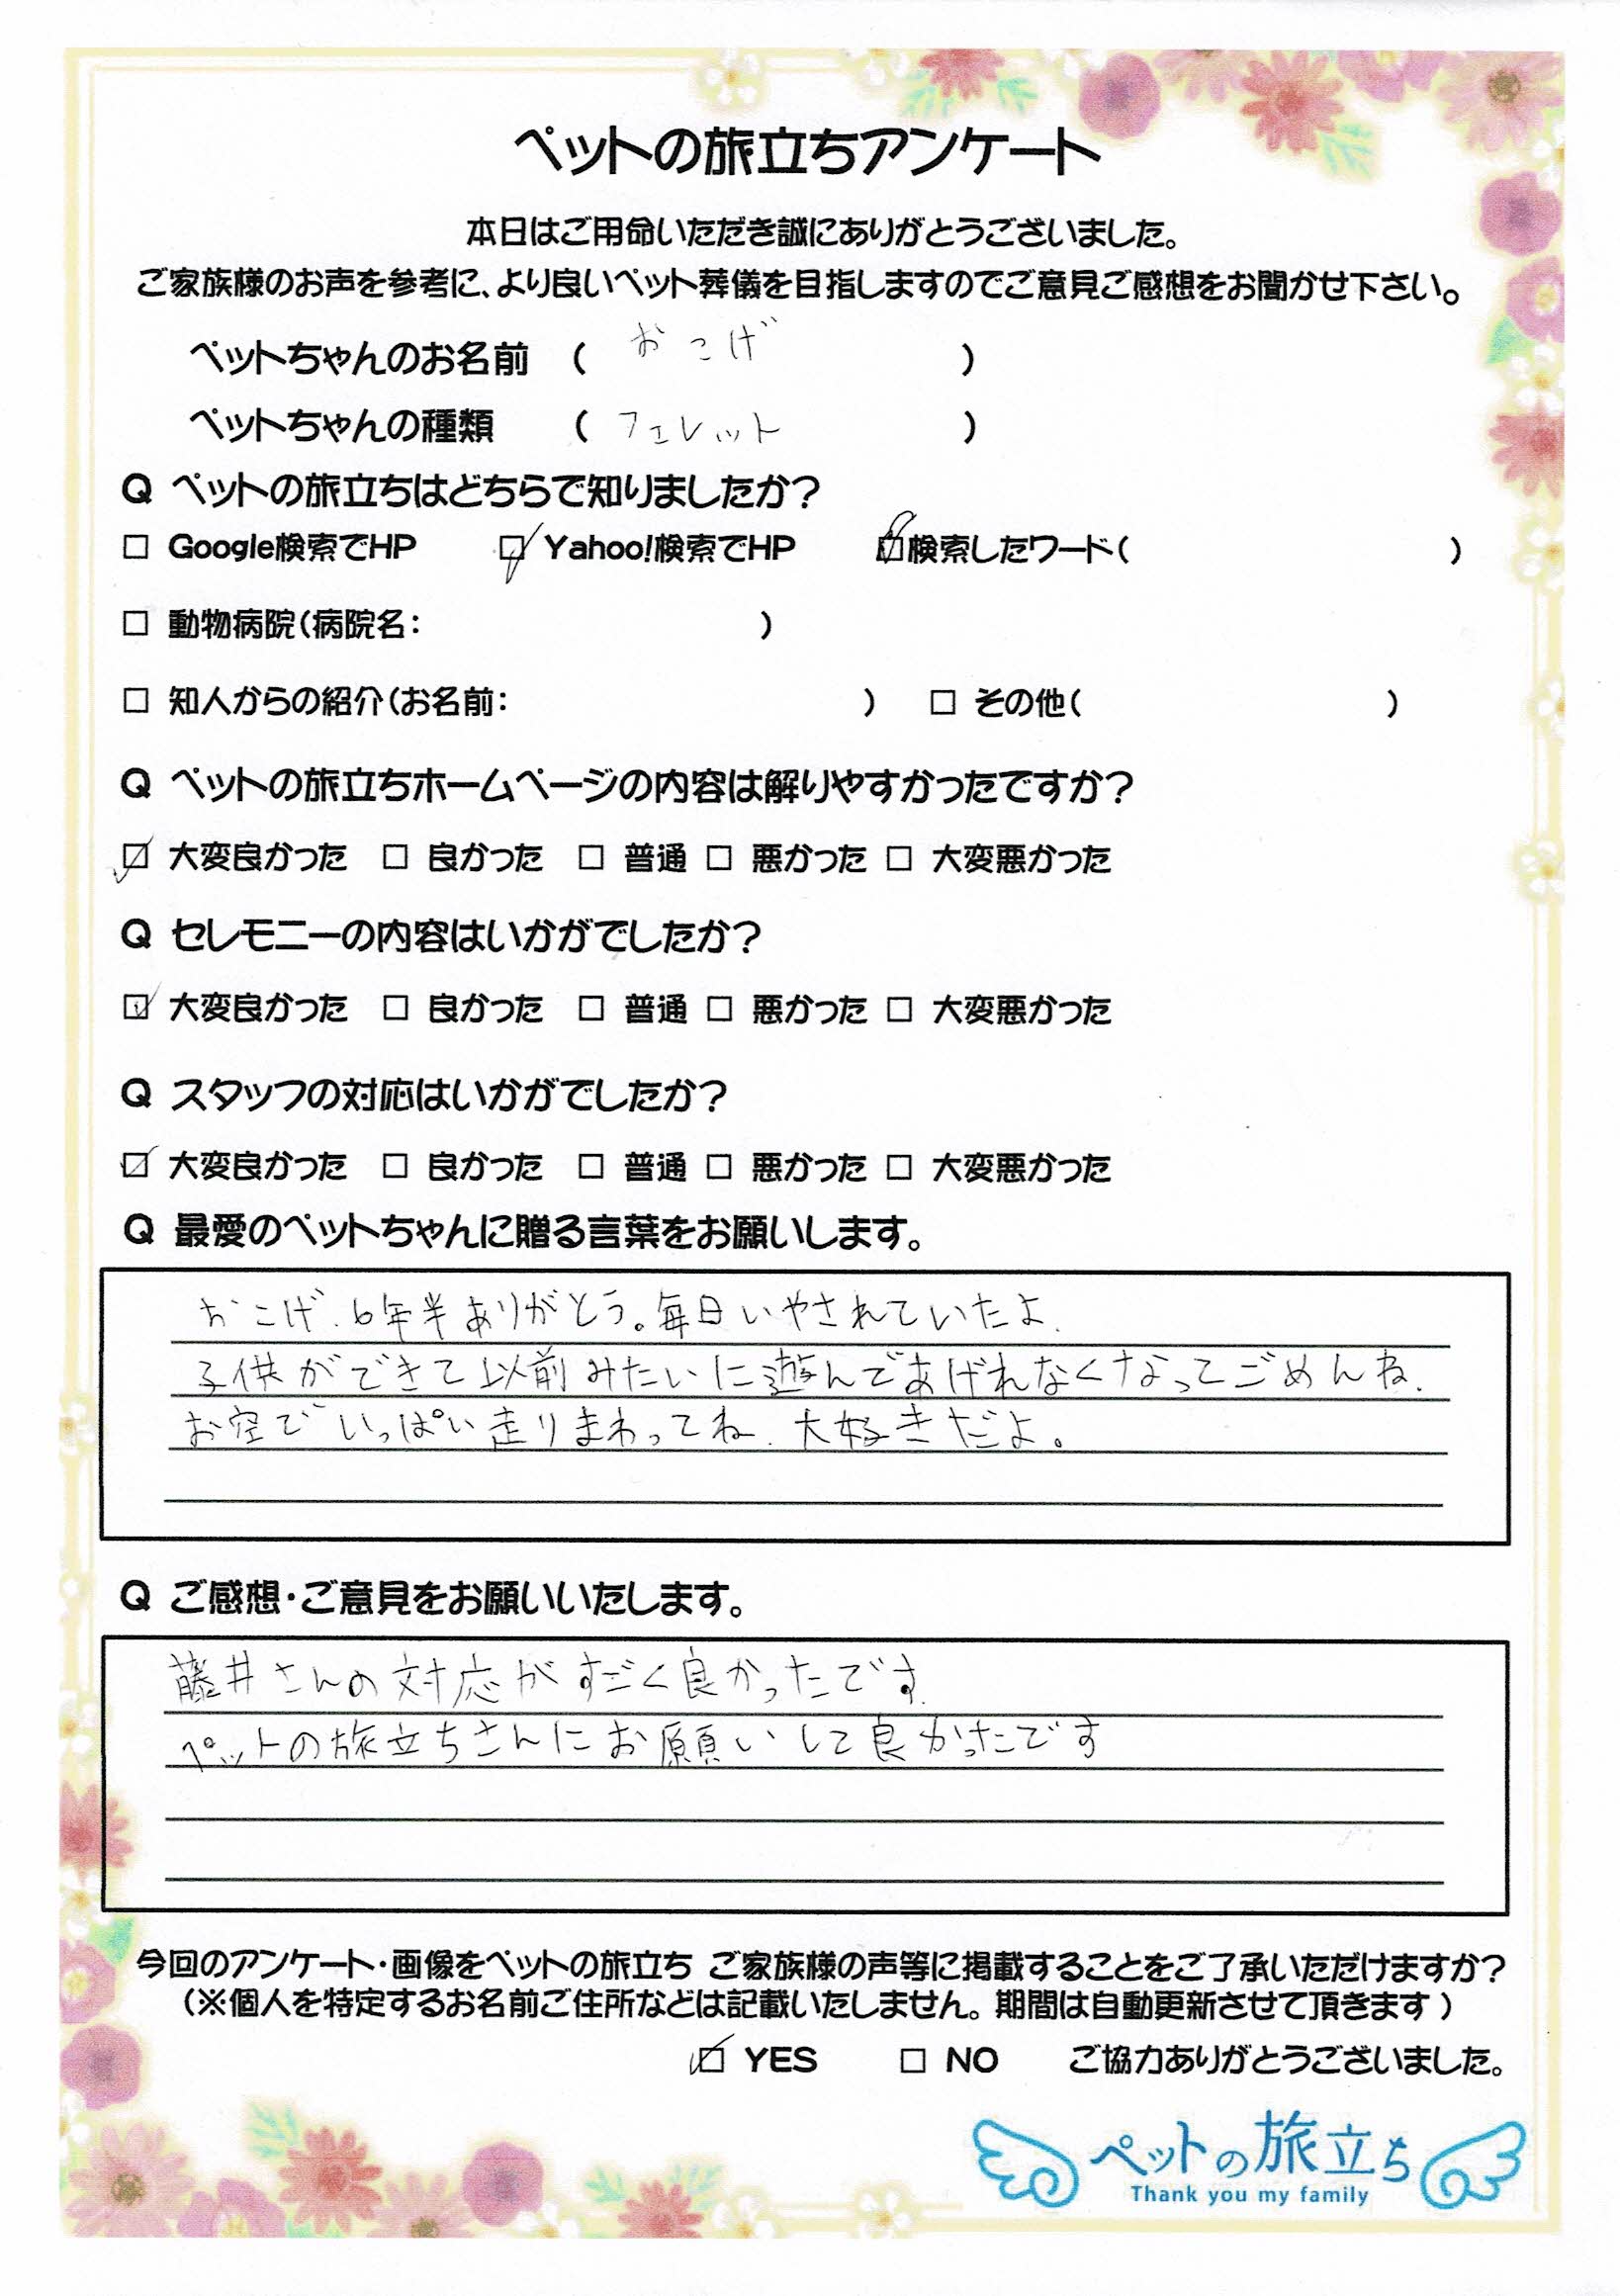 ペットの旅立ちアンケート
本日はご用命いただき誠にありがとうございました。
ご家族様のお声を参考に、より良いペット葬儀を目指しますのでご意見ご感想をお聞かせ下さい。
ペットちゃんのお名前 ( おこげ )
ペットちゃんの種類 ( フェレット )
Q ペットの旅立ちはどちらで知りましたか?
□ Google検索でHP ☑ Yahoo!検索でHP □検索したワード( )
□ 動物病院(病院名: )
□ 知人からの紹介(お名前: ) □ その他( )
Q ペットの旅立ちホームページの内容は解りやすかったですか?
☑ 大変良かった □ 良かった □ 普通 □ 悪かった □ 大変悪かった
Q セレモニーの内容はいかがでしたか?
☑ 大変良かった □ 良かった □ 普通 □ 悪かった □ 大変悪かった
Q スタッフの対応はいかがでしたか?
☑ 大変良かった □ 良かった □ 普通 □ 悪かった □ 大変悪かった
Q 最愛のペットちゃんに贈る言葉をお願いします。
おこげ、6年半ありがとう。毎日いやされていたよ、
子供ができて以前みたいに遊んであげれなくなってごめんね、
お空でいっぱい走りまわってね、大好きだよ。
Q ご感想・ご意見をお願いいたします。
藤井さんの対応がすごく良かったです、
ペットの旅立ちさんにお願いして良かったです
今回のアンケート・画像をペットの旅立ち ご家族様の声等に掲載することをご了承いただけますか?
(※個人を特定するお名前ご住所などは記載いたしません。期間は自動更新させて頂きます)
☑ YES □ NO ご協力ありがとうございました。
ペットの旅立ち
Thank you my family